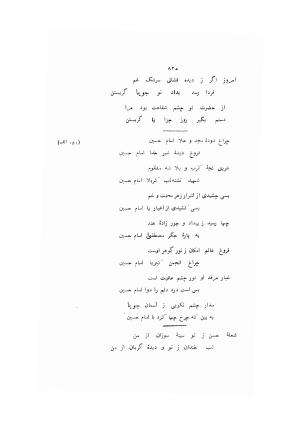 ۸۲۵
امروز اگر ز دیده فشانی سرشک غم
فردا رسد بداد تو جویا گریستن
از حضرت تو چشم شفاعت بود مرا
دستم بگیر روز جزا یا گریستن
چراغ دودهٔ مجد و علا امام حسین
فروغ دیدهٔ شیر خدا امام حسین
غریق لجهٔ کرب و بلا شه مظلوم
شهید تشنه‌لب کربلا امام حسین
بسی چشیدی از اشرار زهر محنت و غم
بسی کشیدی از اغیار یا امام حسین
چها رسید ز بیداد و جور زادهٔ هند
به پارهٔ جگر مصطفی امام حسین
فروغ عالم امکان ز نور گوهر اوست
چراغ انجمن کبریا امام حسین
غبار مرقد او نور چشم عافیت است
بس است درد دلم را دوا امام حسین
مدار چشم نکویی ز آسمان جویا
به بین که چرخ چها کرد با امام حسین
شعلهٔ حسن ز تو سینهٔ سوزان از من
لب خندان ز تو و دیدهٔ گریان از من